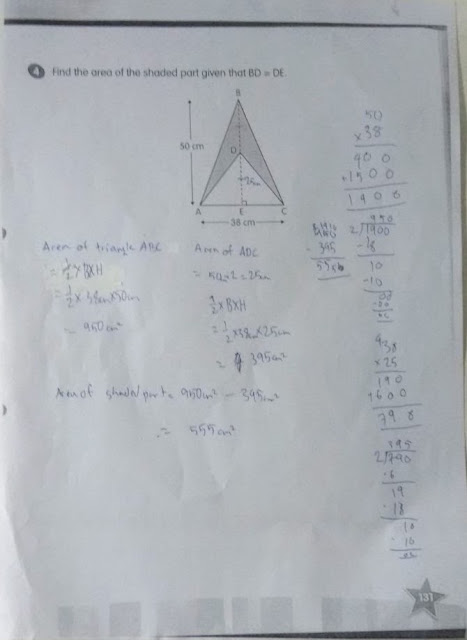 4 Find the area of the shaded part given that BD = DE.
B
50 cm
D
25cm
A E C
38 cm
Area of triangle ABC
= 1/2 x BXH
= 1/2 x 38cm x 50cm
= 950cm²
Area of ADC
= 50÷2 = 25cm
1/2 x BXH
= 1/2 x 38cm x 25cm
= 395cm²
Area of shaded part = 950cm² - 395cm²
= 555cm²
50
x38
400
+1500
1900
950
2/1900
-18
10
-10
- 395
555
38
x25
190
+600
790
395
2/790
-6
19
-18
10
10
131